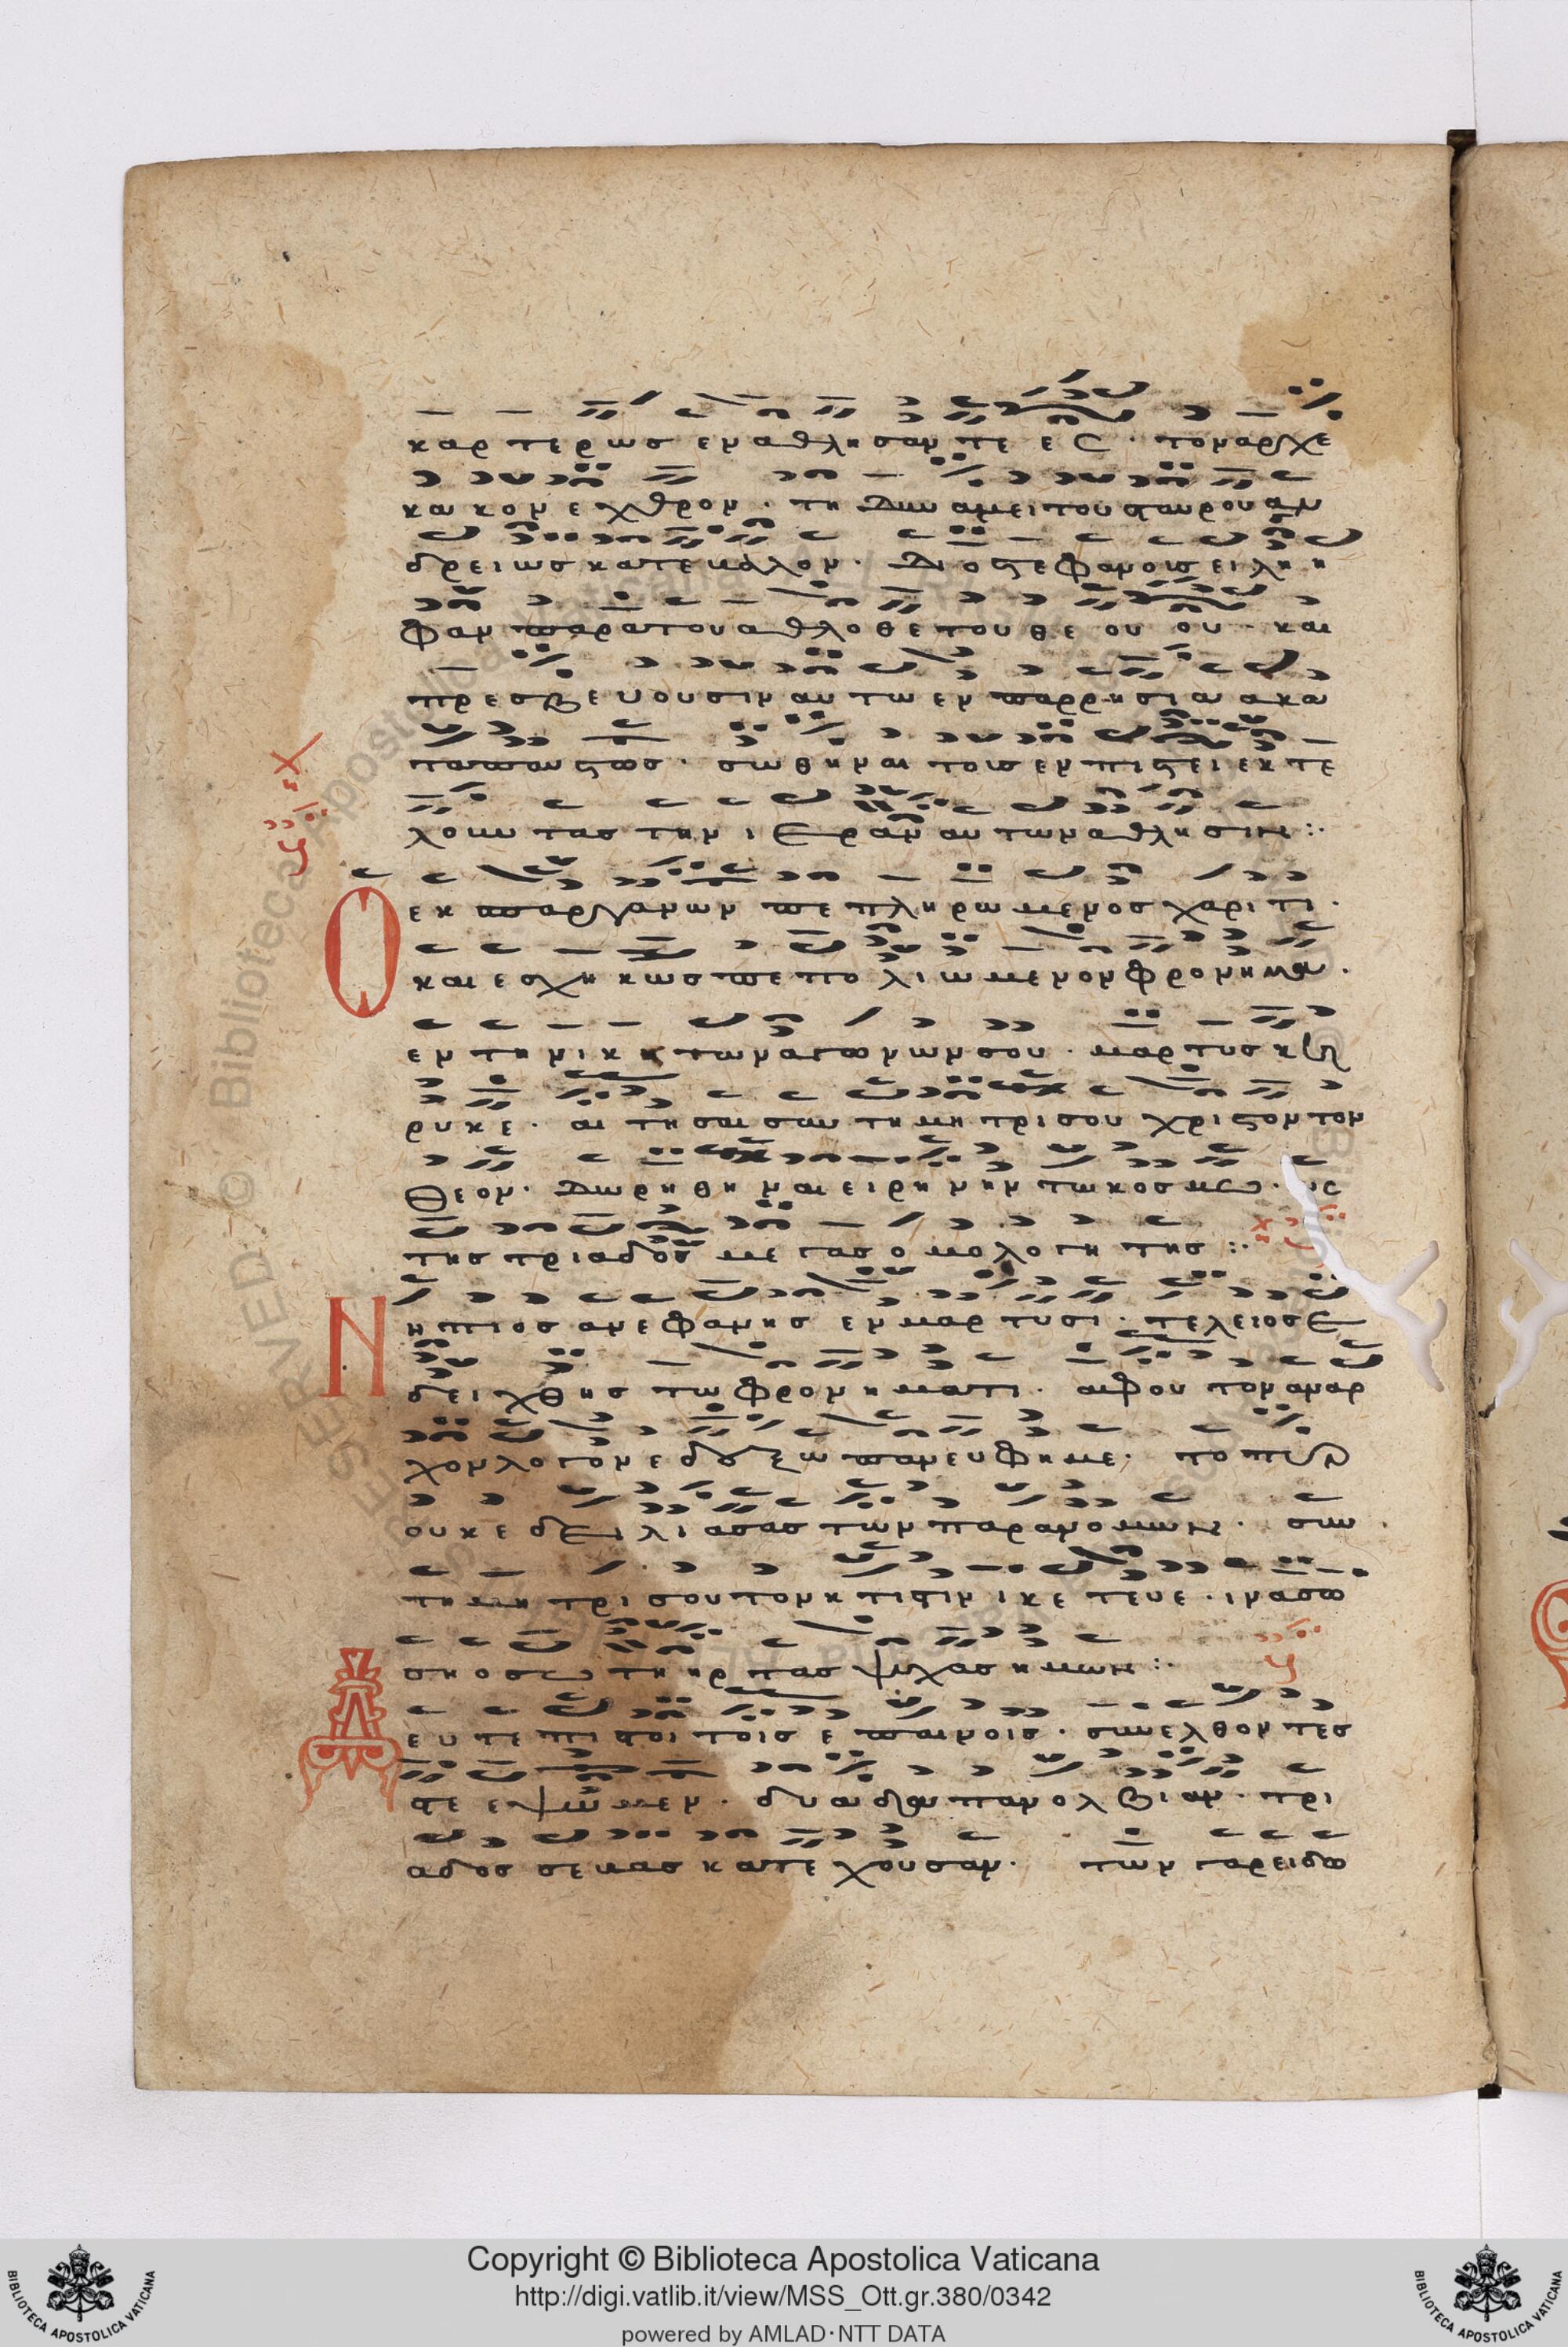 καρ τε ρως εν α θλη σαν τε ες · τον αρχε
κα κον ε χθρον · τη δυν αμει του σταυρου αν
δρει ως κατε βαλον · διο στε φανοις ει λη
φαν παρα του α θλο θε του θε ου ου · και
πρεσβευουσιν αυ τω εν παρρησια ακα
ταπαυστως · σωθηναι τους εν πιστει εκ τε
λουν τας την ι εραν αυ των αθλησιν :·
Ο εκ σπαργανων πε πληρωμενος χαρι τι ·
και ε σχη κως πε πο λιωμενον φρονημα ·
εν τη νι κη των αγωνων σου · μαρτυς κη
ρυκε · αι τησαι συν τη μη τρι σου χριστον τον
θεον · δωρηθη ναι ειρη νην τω κοσμω ·
της τριαδος με γας ο μολο γη της :·
Ν η πιος ανεφανης εν μαρ τυσι · τελειος ε
δειχθης τω φρονηματι · αφ ου τον αναρ
χον λογον ε δοξω πανευφημε · το πυρ
ουκ ε δει λι ασας των παρανομων · συν
τη μη τρι σου τον κτιστιν ι κε τευε · ινα σω
ση ο σω τηρ τας ψυχας ημων :·
Δ ευ τε πιστοι τοις ε παινοις · συνελθον τες
στε ψωμεν · δυαδα πανολβιαν · τρι
αδος σεβας κατε χουσαν · των γαρ ειδω
Copyright © Biblioteca Apostolica Vaticana
http://digi.vatlib.it/view/MSS_Ott.gr.380/0342
powered by AMLAD·NTT DATA
BIBLIOTECA APOSTOLICA VATICANA
BIBLIOTECA APOSTOLICA VATICANA